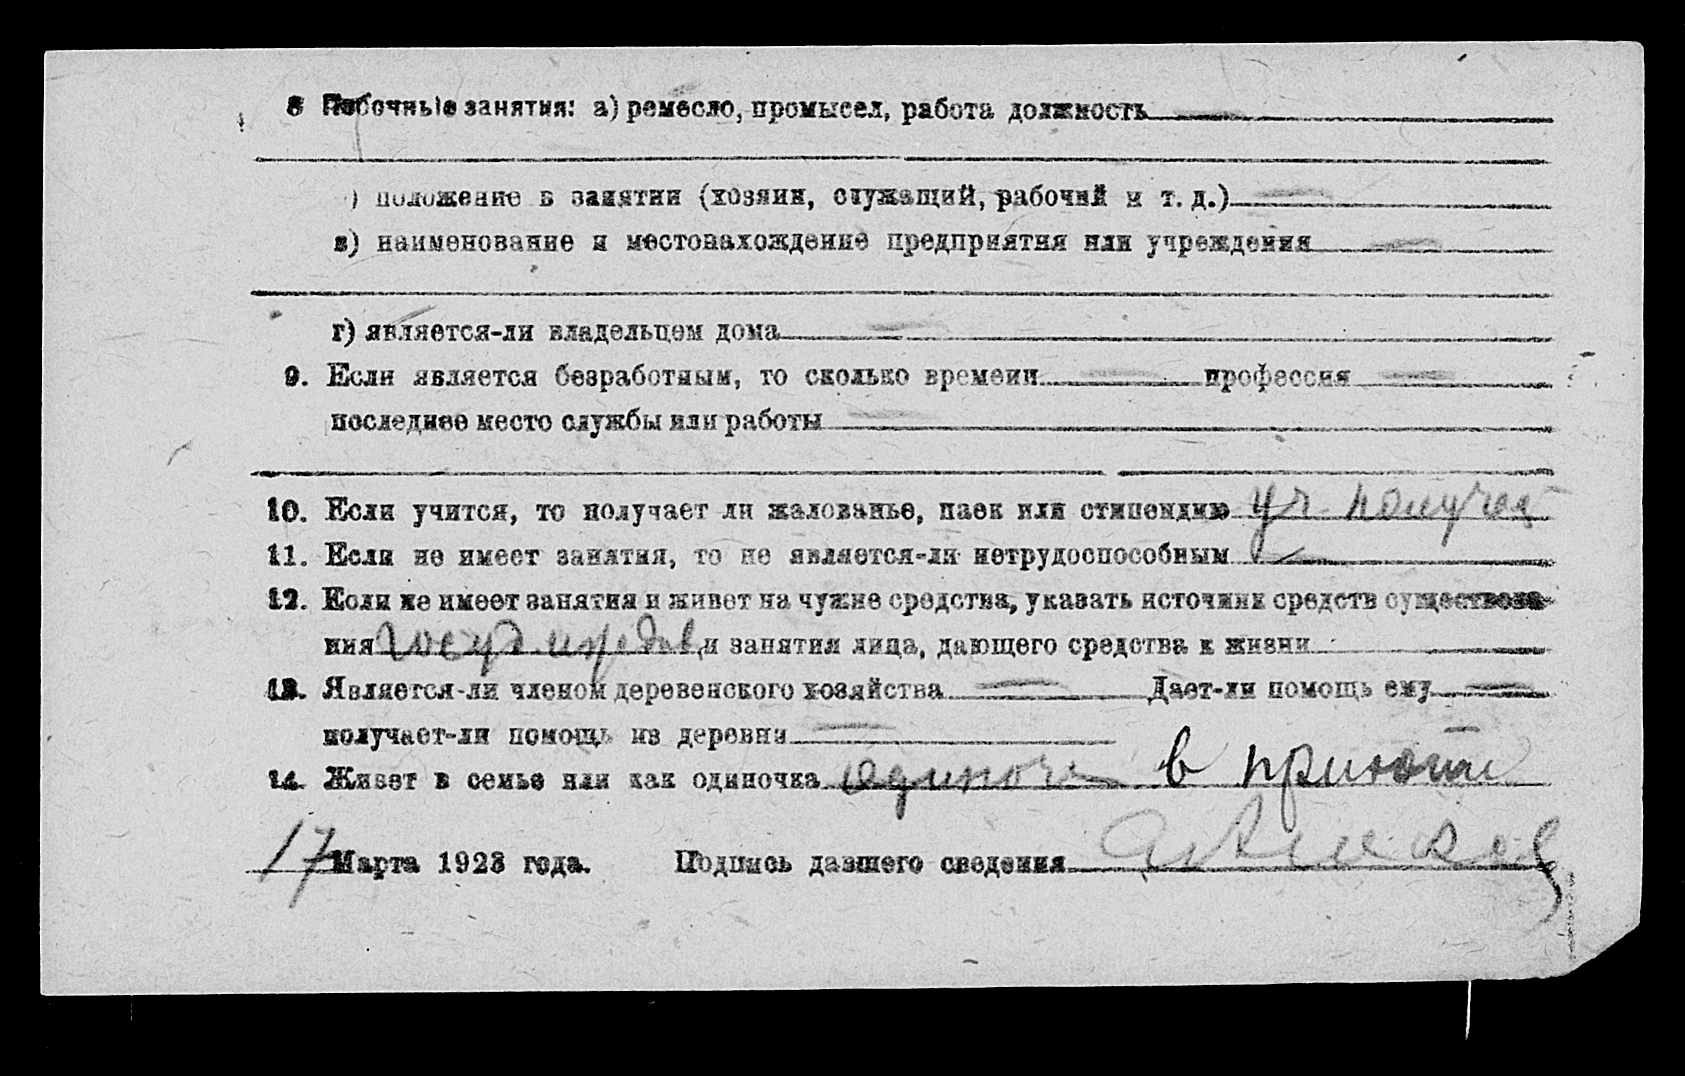 8 Побочные занятия: а) ремесло, промысел, работа должность
) положение в занятии (хозяин, служащий, рабочий и т. д.)
в) наименование и местонахождение предприятия или учреждения
г) является-ли владельцем дома
9. Если является безработным, то сколько времени профессия
последнее место службы или работы
10. Если учится, то получает ли жалованье, паек или стипендию уч. получа
11. Если не имеет занятия, то не является-ли нетрудоспособным
12. Если не имеет занятия и живет на чужие средства, указать источник средств существова-
ния госуд. и занятия лица, дающего средства к жизни
13. Является-ли членом деревенского хозяйства Дает-ли помощь ему
получает-ли помощь из деревни
14. Живет в семье или как одиночка одиноч в приюти
17 Марта 1923 года. Подпись давшего сведения